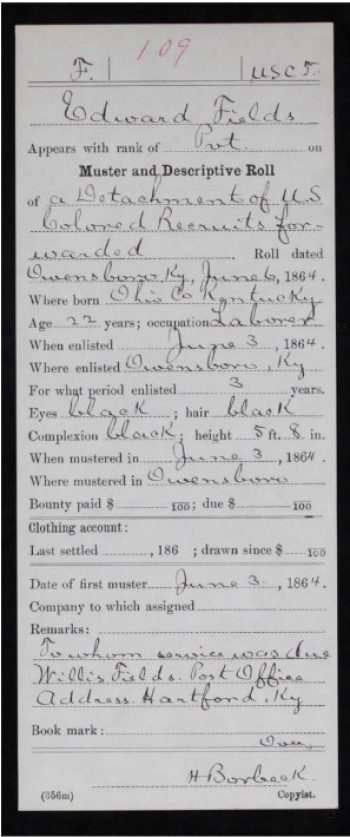 109
F. | | U.S.C.T.
Edward Fields
Appears with rank of Pvt. on
Muster and Descriptive Roll
of a Detachment of U.S.
Colored Recruits for-
warded Roll dated
Owensboro Ky, June 6, 1864.
Where born Ohio Co Kentucky
Age 22 years; occupation Laborer
When enlisted June 3, 1864.
Where enlisted Owensboro, Ky
For what period enlisted 3 years.
Eyes black; hair black
Complexion black; height 5 ft. 8 in.
When mustered in June 3, 1864.
Where mustered in Owensboro
Bounty paid $ 100; due $ 100
Clothing account:
Last settled , 186 ; drawn since $ 100
Date of first muster June 3, 1864.
Company to which assigned
Remarks:
To whom service was due
Willis Fields. Post Office
Address. Hartford, Ky
Book mark:
Over
H Borbeck.
(356m) Copyist.